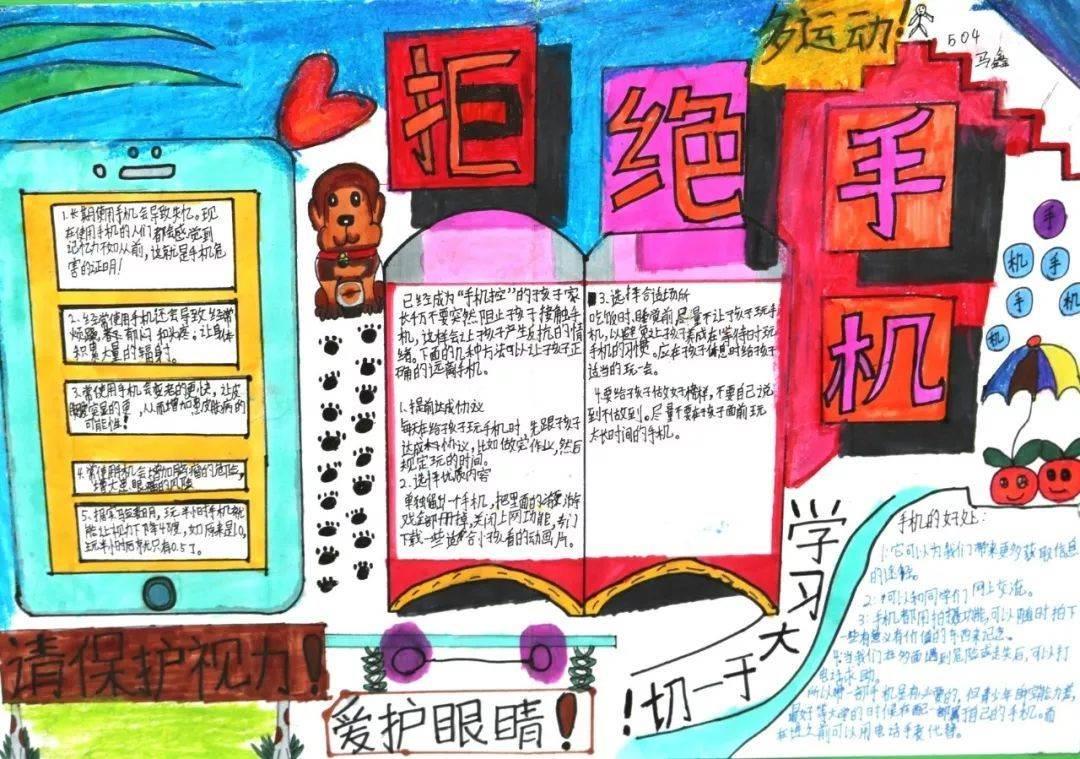 拒绝手机
多运动!
504
马鑫
1.长期使用手机会导致失忆。现
在使用手机的人们都会感觉到
记忆力不如从前,这就是手机危
害的证明!
2.经常使用手机还会导致经常
烦躁、郁闷和头疼。让身体
积累大量的辐射。
3.常使用手机会变老的更快,让皮
从而增加患皮肤病的
可能性!
4.常使用手机会增加眼瘤的
增大患眼瘤的风险
5.
能让视力下降
玩半小时后就只有0.5了。
已经成为“手机控”的孩子家
长千万不要突然阻止孩子接触手
机,这样会让孩子产生反抗的情
绪。下面的几种方法可以让孩子正
确的远离手机。
1.提前达成协议
每天在给孩子玩手机时,先跟孩子
达成协议,比如做完作业,然后
规定玩的时间。
2.选择优质内容
单独留出一个手机,把里面的游
戏全部删掉,关闭上网功能,专门
下载一些适合小孩看的动画片。
3.选择合适场所
吃饭时、睡觉前尽量不让孩子玩手
机,以避免让孩子养成在等待时玩
手机的习惯。应在孩子休息时给孩子
适当的玩一会。
4.要给孩子做好榜样,不要自己说
到不做到。尽量不要在孩子面前玩
太长时间的手机。
手
机
手
手
机
机
学习大于一切!
手机的好处:
1.它可以为我们带来更多获取信息
的途径。
2.可以和同学们网上交流。
3.手机都用拍摄功能,可以随时拍下
一些有意义有价值的东西来记忆。
4.当我们在外面遇到危险或丢失后,可以打
电话求助。
所以带一部手机是有必要的,但青少年自控能力差,
最好等大学的时候在配一部属于自己的手机。而
在这之前可以用电话手表代替。
请保护视力!
爱护眼睛!